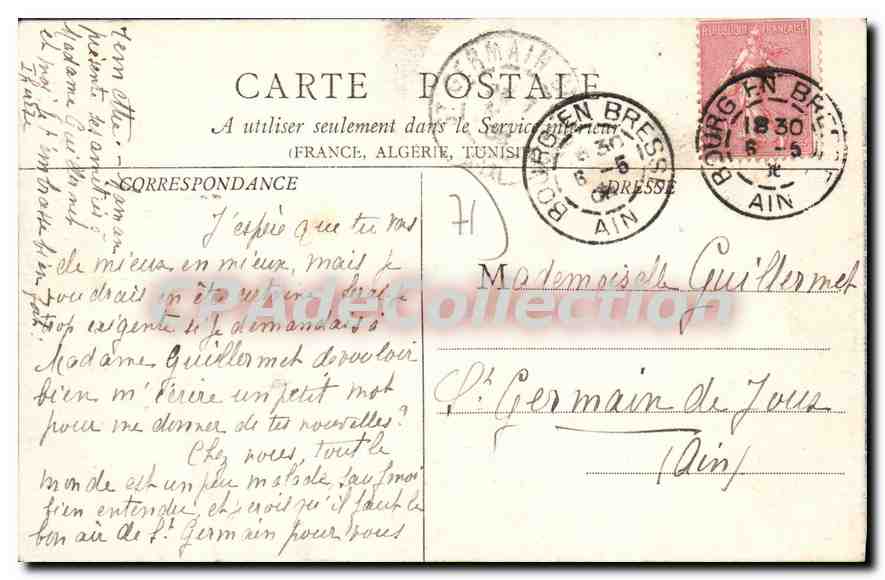 RÉPUBLIQUE FRANÇAISE
CARTE POSTALE
A utiliser seulement dans le Service intérieur
(FRANCE, ALGÉRIE, TUNISIE)
CORRESPONDANCE
ADRESSE
ST GERMAIN
BOURG EN BRESSE
18 30
6 - 5
AIN
BOURG EN BRESSE
18 30
6 - 5
AIN
71
J'espère que tu vas
de mieux en mieux, mais je
voudrais en être certaine, serais-je
trop exigente si je demandais à
Madame Guillermet de vouloir
bien m'écrire un petit mot
pour me donner de tes nouvelles?
Chez nous, tout le
monde est un peu malade, sauf moi
bien entendu, et je crois qu'il faut le
bon air de St Germain pour vous
remettre. Maman
présente ses amitiés à
Madame Guillermet
et moi je t'embrasse bien fort.
Mademoiselle Guillermet
St Germain de Joux
(Ain)
CPAdeCollection